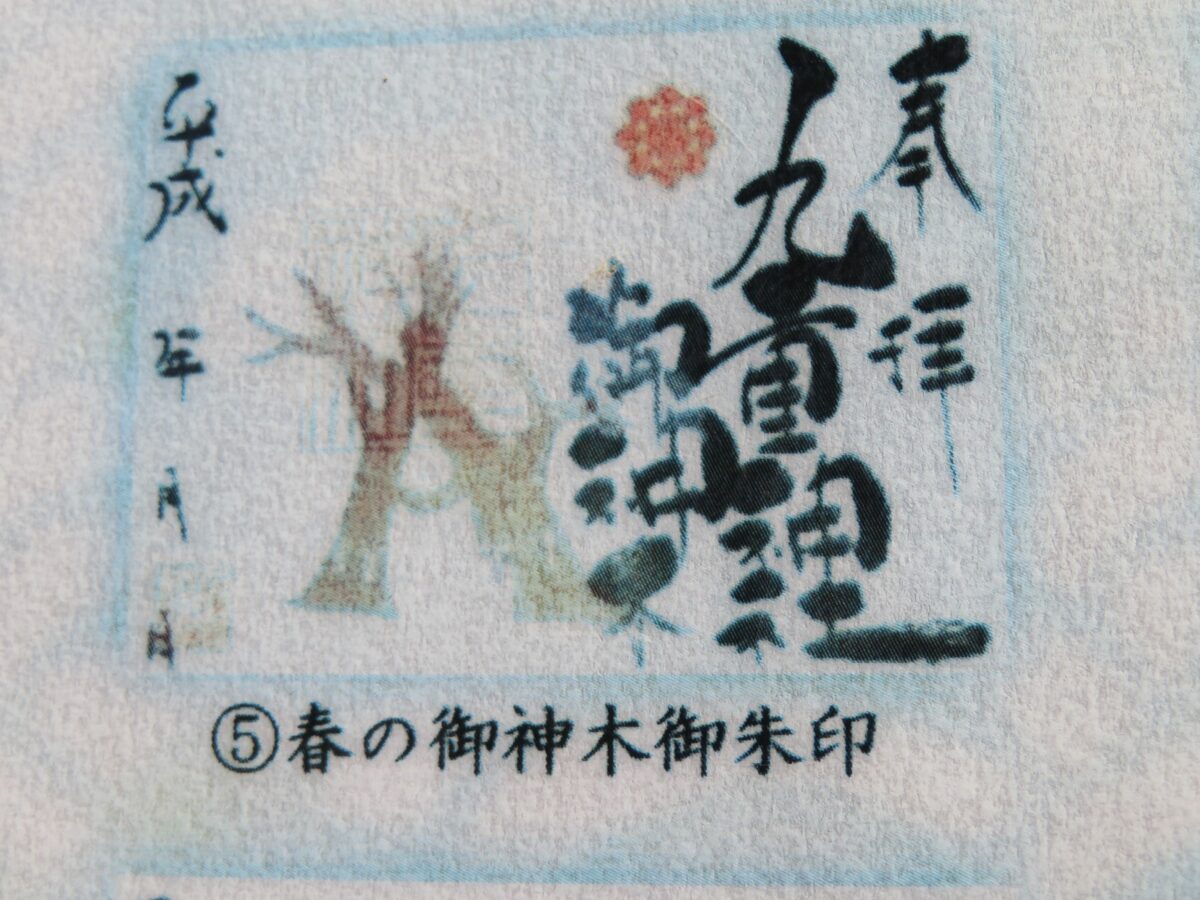 奉拝
九重神社
御神木
平成 年 月 日
⑤春の御神木御朱印